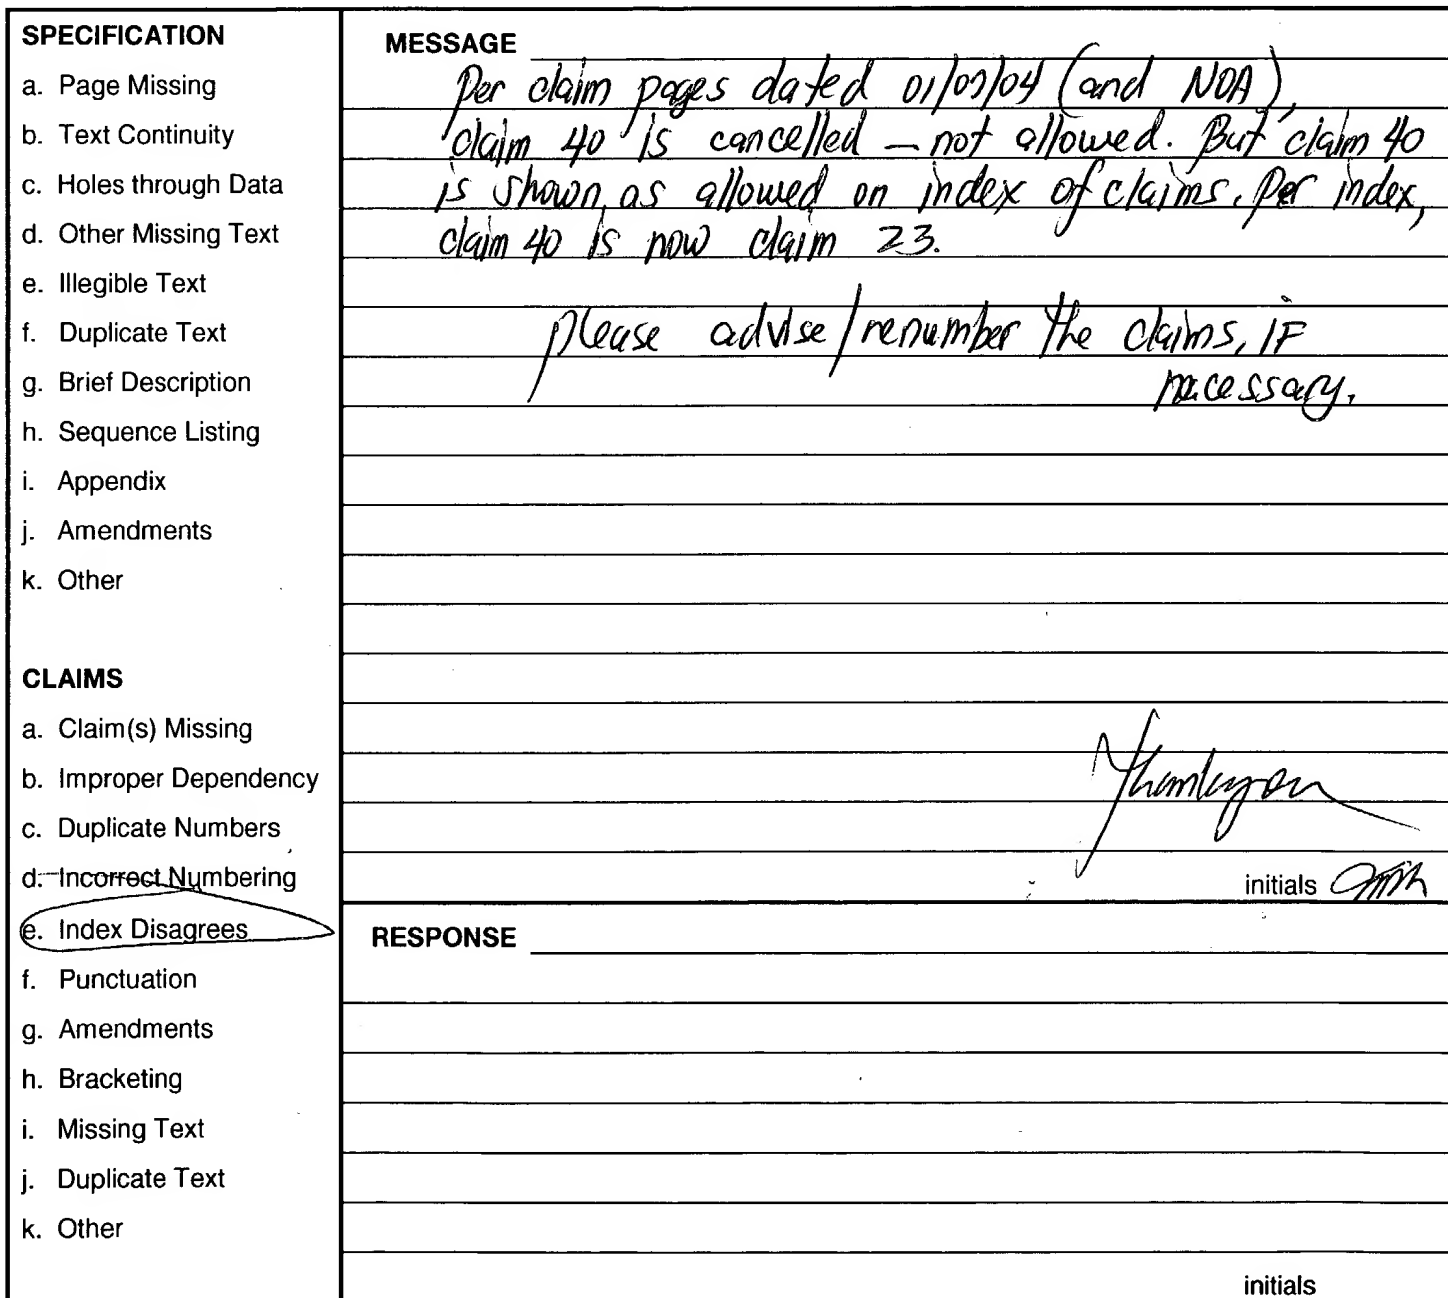 SPECIFICATION
a. Page Missing
b. Text Continuity
c. Holes through Data
d. Other Missing Text
e. Illegible Text
f. Duplicate Text
g. Brief Description
h. Sequence Listing
i. Appendix
j. Amendments
k. Other
CLAIMS
a. Claim(s) Missing
b. Improper Dependency
c. Duplicate Numbers
d. Incorrect Numbering
e. Index Disagrees
f. Punctuation
g. Amendments
h. Bracketing
i. Missing Text
j. Duplicate Text
k. Other
MESSAGE
Per claim pages dated (and NOA),
claim 40 is cancelled – not allowed. But claim 40
is shown as allowed on index of claims. Per index,
claim 40 is now claim 23.
please advise/renumber the claims, IF
necessary.
initials
RESPONSE
initials